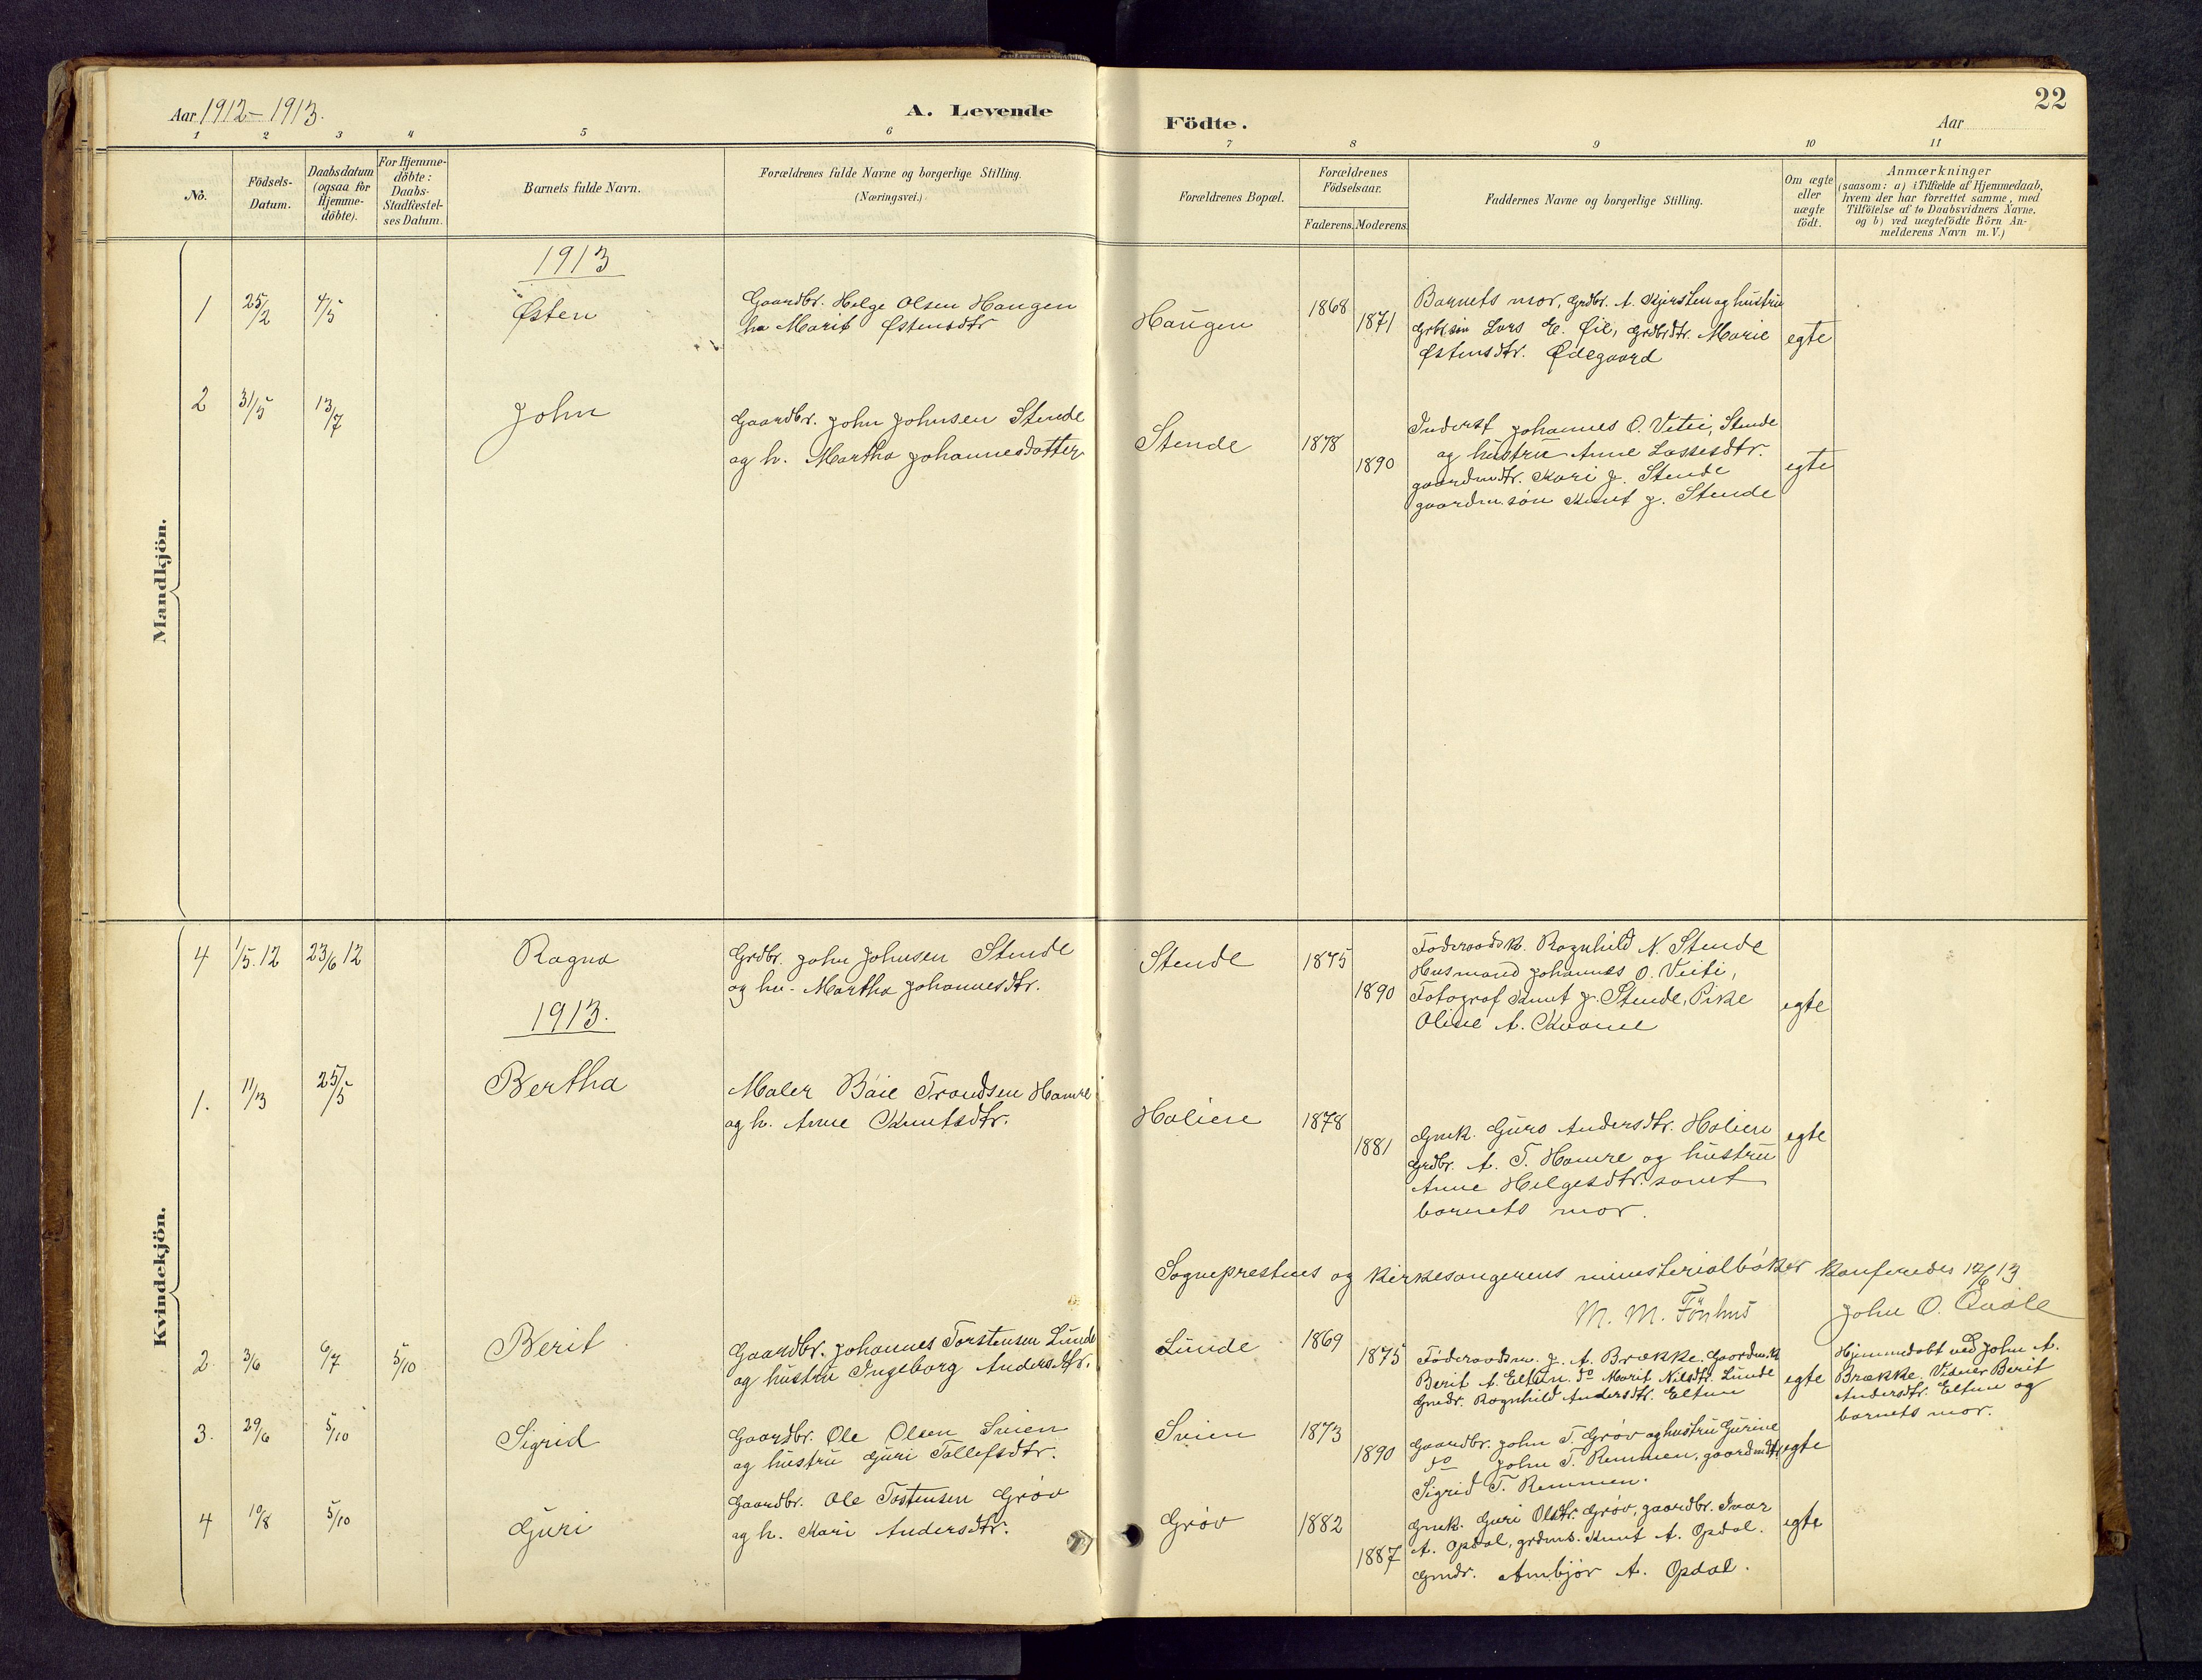 Aar 1912-1913.
A. Levende
Födte.
Aar
22
1 2 3 4 5 6 7 8 9 10 11
No.
Födsels-
Datum.
Daabsdatum
(ogsaa for
Hjemme-
döbte).
For Hjemme-
döbte:
Daabs-
Stadfæstel-
ses Datum.
Barnets fulde Navn.
Forældrenes fulde Navne og borgerlige Stilling.
(Næringsvei.)
Forældrenes Bopæl.
Forældrenes
Födselsaar.
Faderens. Moderens.
Faddernes Navne og borgerlige Stilling.
Om ægte
eller
uægte
födt.
Anmærkninger
(saasom: a) i Tilfælde af Hjemmedaab,
hvem der har forrettet samme, med
Tilföielse af to Daabsvidners Navne,
og b) ved uægtefödte Börn An-
melderens Navn m. V.)
Mandkjön.
1913
1 25/2 4/5 Østen
Gaardbr. Helge Olsen Haugen
hu Marit Østensdtr
Haugen 1868 1871
Barnets mor, grdbr. A. Kjersten og hustru
Lars E. Øie, grdbrdtr. Marie
Østensdtr. Ødegaard
egte
2 31/5 13/7 John
Gaardbr. John Johnsen Stende
og h. Martha Johannesdatter
Stende 1878 1890
Inderst Johannes O. Vetei, Stende
og hustru Anne Lassesdtr.
gaardmdtr. Kari J. Stende
gaardm.søn Knut J. Stende
egte
Kvindekjön.
4 1/5.12 23/6 12 Ragna
Grdbr. John Johnsen Stende
og hu. Martha Johannesdtr.
Stende 1875 1890
Føderaadsk. Ragnhild N. Stende
Husmand Johannes O. Veiti,
Fotograf Knut J. Stende, Pike
Oline A. Kvame
egte
1913.
1. 11/3 25/5 Bertha
Maler Boie Trondsen Hamre
og h. Anne Knutsdtr.
Holien 1878 1881
Gmk. Guro Andersdtr. Holien
grdbr. A. T. Hamre og hustru
Anne Helgesdtr. samt
barnets mor.
egte
Sogneprestens og kirkesangerens ministerialbøker konferedes 12/6 13
M. M. Fönhus
John O. Qvale
2 3/6 6/7 5/10 Berit
Gaardbr. Johannes Torstensen Lunde
og hustru Ingeborg Andersdtr.
Lunde 1869 1875
Føderaadsm. J. A. Brække. Gaardm.k
Berit A. Eltun. do Marit Nilsdtr. Lunde
Gmdr. Ragnhild Andersdtr. Eltun
egte
Hjemmedøbt ved John A.
Brække. Vidner Berit
Andersdtr. Eltun og
barnets mor.
3. 29/6 5/10 Sigrid
Gaardbr. Ole Olsen Svien
og hustru Guri Tollefsdtr.
Svien 1873 1890
Gaardbr. John T. Grøv og hustru Gurine
do John T. Remmen, gaardmdtr.
Sigrid T. Remmen.
egte
4 10/8 5/10 Guri
Gaardbr. Ole Tostensen Grøv
og h. Kari Andersdtr.
Grøv 1882 1887
Gmk. Guri Olsdtr. Grøv, gaardbr. Ivar
A. Opdal, grdms. Knut A. Opdal.
Gmdr. Ambjør A. Opdal.
egte